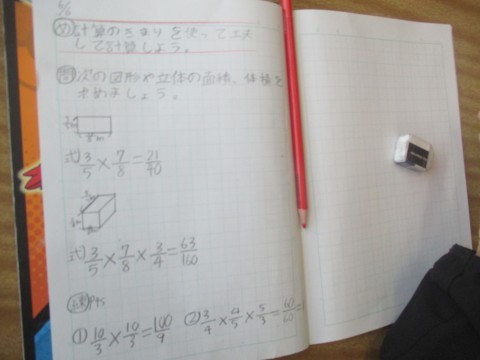 6/6
め 計算のきまりを使って工夫
して計算しよう。
問 次の図形や立体の面積、体積を
求めましょう。
式 3/5 × 7/8 = 21/40
式 3/5 × 7/8 × 3/4 = 63/160
練 P45
① 10/3 × 10/3 = 100/9 ② 3/4 × 4/5 × 5/3 = 60/60 =